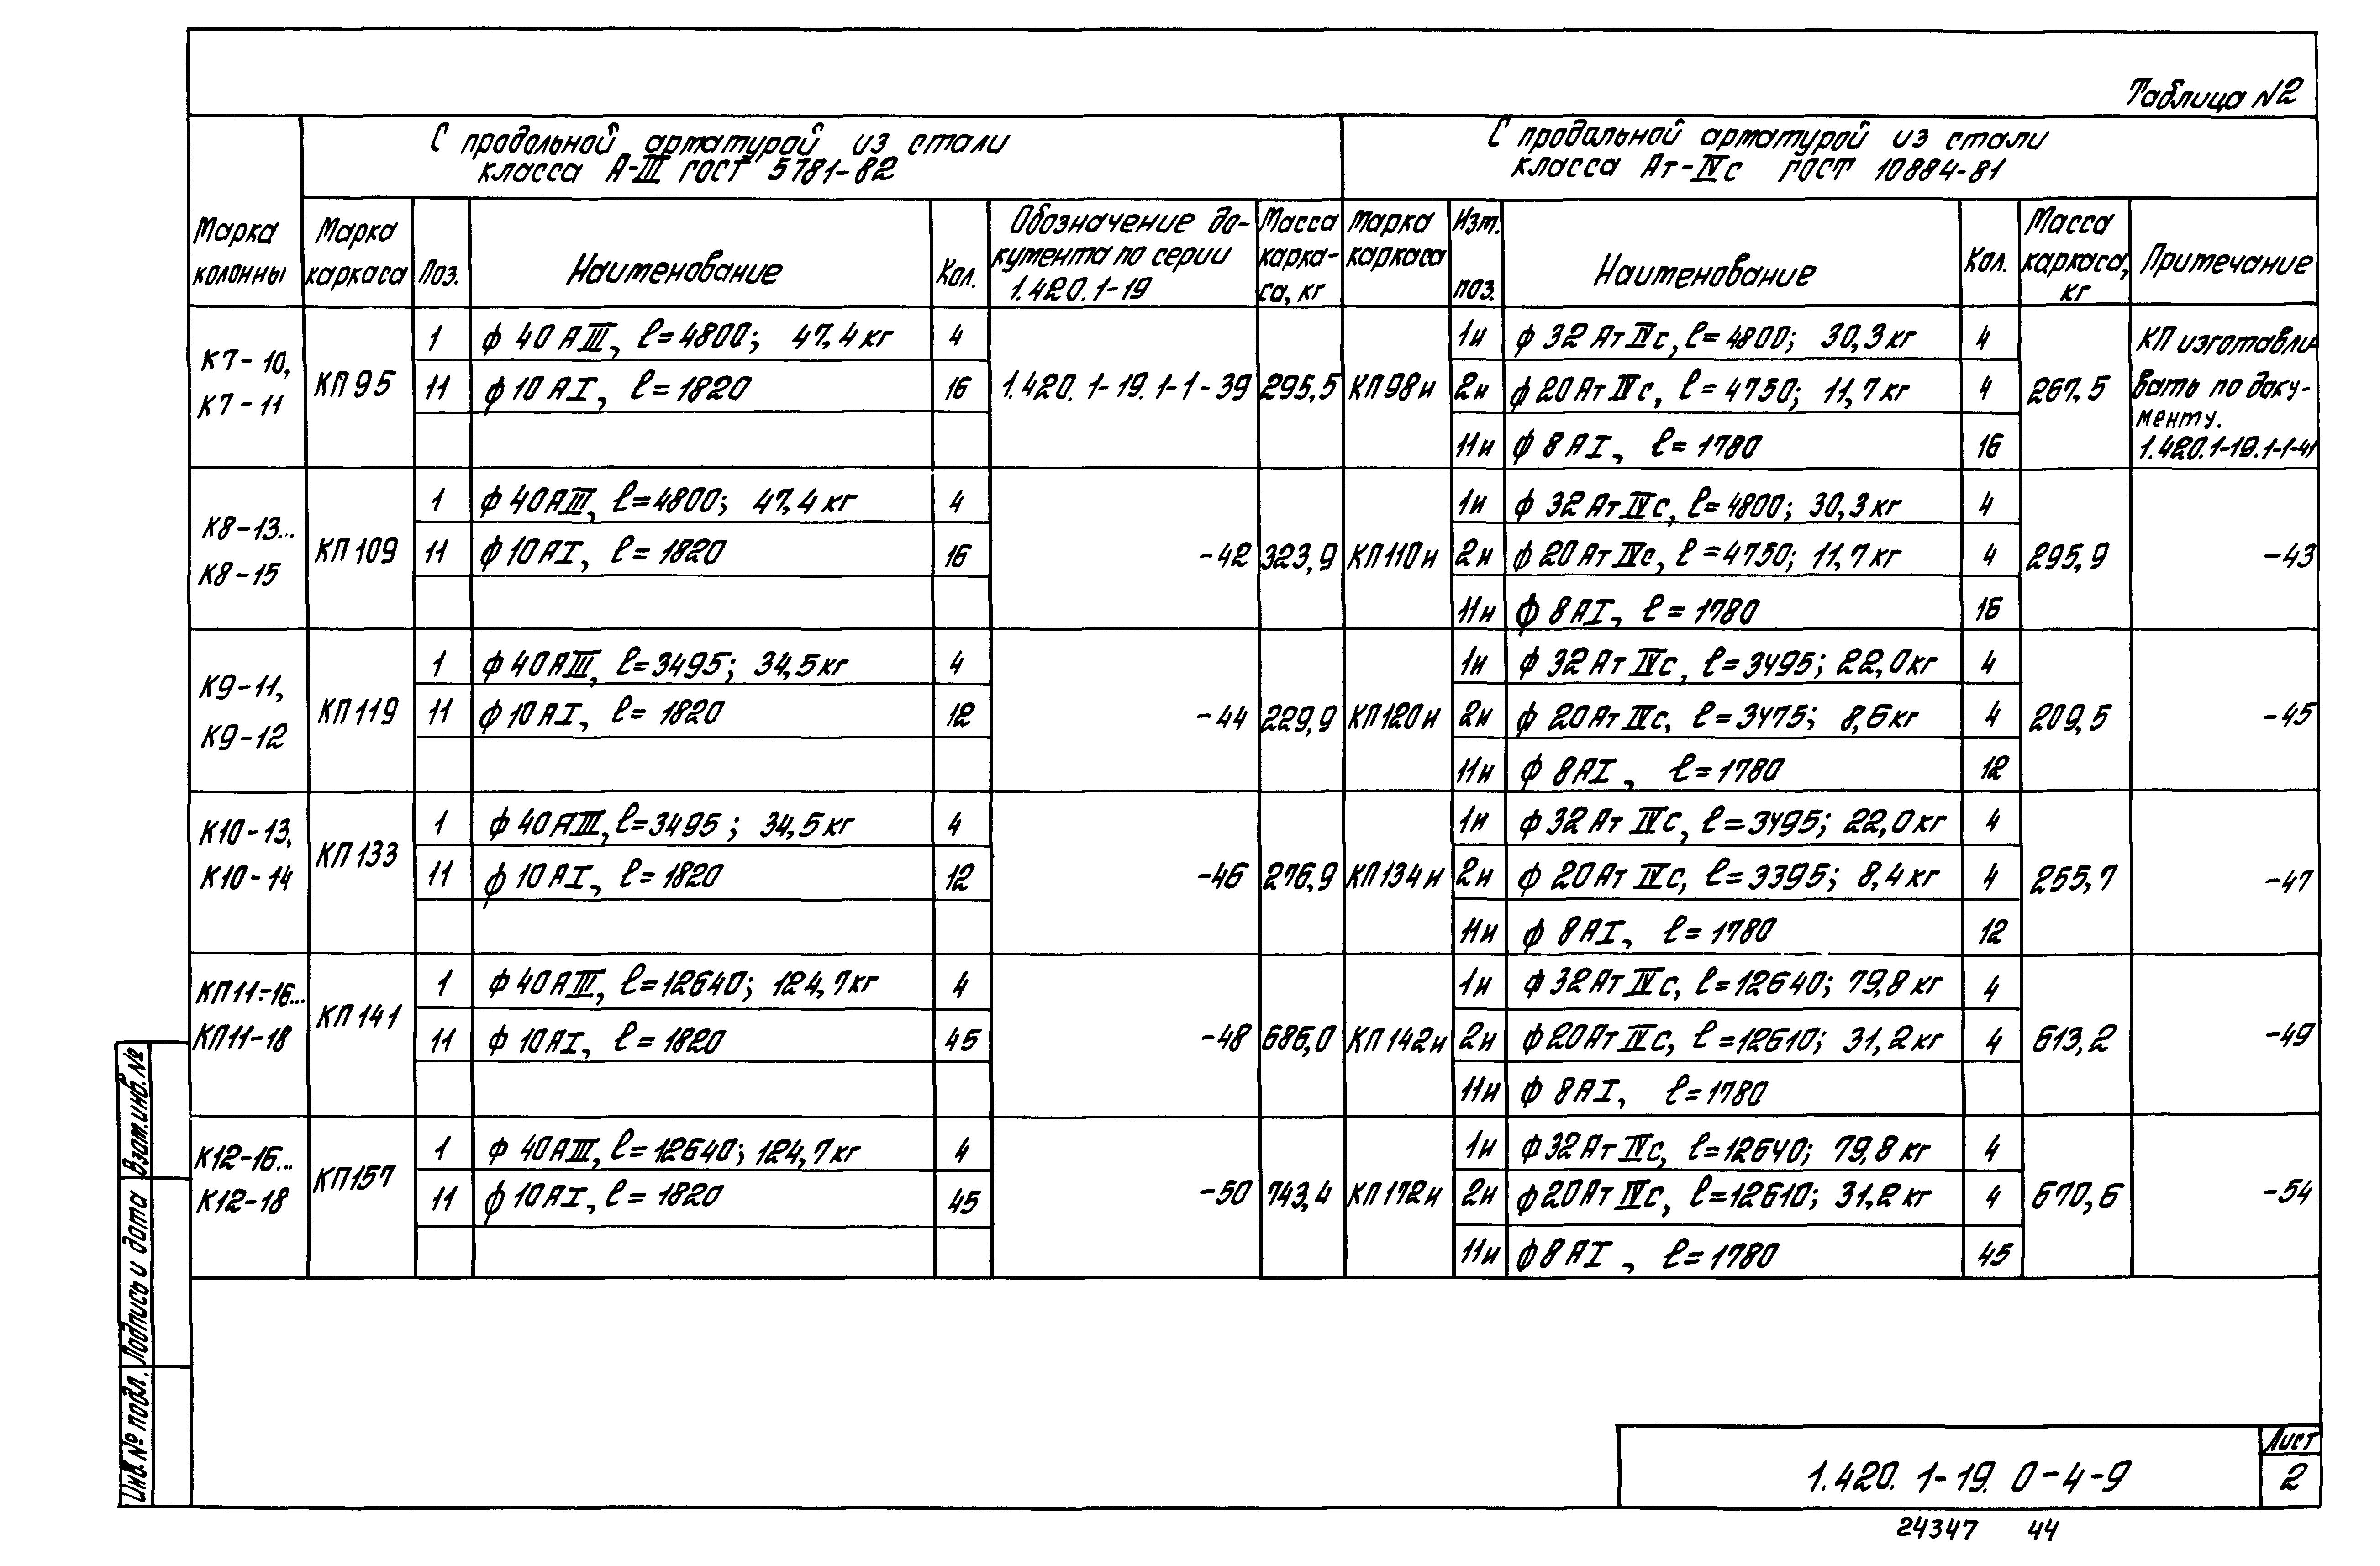 Таблица №2
С продольной арматурой из стали
класса А-III ГОСТ 5781-82
С продольной арматурой из стали
класса Ат-IVс ГОСТ 10884-81
Марка
колонны
Марка
каркаса
Поз.
Наименование
Кол.
Обозначение до-
кумента по серии
1.420.1-19
Масса
карка-
са, кг
Марка
каркаса
Изм.
поз.
Наименование
Кол.
Масса
каркаса,
кг
Примечание
К7-10,
К7-11
КП95
1 ф 40 АIII, ℓ=4800; 47,4 кг 4
11 ф 10 АI, ℓ=1820 16
1.420.1-19.1-1-39 295,5 КП98и
1и ф 32 Ат IVс, ℓ=4800; 30,3 кг 4
2и ф 20 Ат IVс, ℓ=4750; 11,7 кг 4
11и ф 8 АI, ℓ=1780 16
267,5
КП изготавли-
вать по доку-
менту.
1.420.1-19.1-1-41
К8-13...
К8-15
КП109
1 ф 40 АIII, ℓ=4800; 47,4 кг 4
11 ф 10 АI, ℓ=1820 16
-42 323,9 КП110и
1и ф 32 Ат IVс, ℓ=4800; 30,3 кг 4
2и ф 20 Ат IVс, ℓ=4750; 11,7 кг 4
11и ф 8 АI, ℓ=1780 16
295,9 -43
К9-11,
К9-12
КП119
1 ф 40 АIII, ℓ=3495; 34,5 кг 4
11 ф 10 АI, ℓ=1820 12
-44 229,9 КП120и
1и ф 32 Ат IVс, ℓ=3495; 22,0 кг 4
2и ф 20 Ат IVс, ℓ=3475; 8,6 кг 4
11и ф 8 АI, ℓ=1780 12
209,5 -45
К10-13,
К10-14
КП133
1 ф 40 АIII, ℓ=3495; 34,5 кг 4
11 ф 10 АI, ℓ=1820 12
-46 276,9 КП134и
1и ф 32 Ат IVс, ℓ=3495; 22,0 кг 4
2и ф 20 Ат IVс, ℓ=3395; 8,4 кг 4
11и ф 8 АI, ℓ=1780 12
255,7 -47
КП11-16...
КП11-18
КП141
1 ф 40 АIII, ℓ=12640; 124,7 кг 4
11 ф 10 АI, ℓ=1820 45
-48 686,0 КП142и
1и ф 32 Ат IVс, ℓ=12640; 79,8 кг 4
2и ф 20 Ат IVс, ℓ=12610; 31,2 кг 4
11и ф 8 АI, ℓ=1780
613,2 -49
К12-16...
К12-18
КП157
1 ф 40 АIII, ℓ=12640; 124,7 кг 4
11 ф 10 АI, ℓ=1820 45
-50 743,4 КП172и
1и ф 32 Ат IVс, ℓ=12640; 79,8 кг 4
2и ф 20 Ат IVс, ℓ=12610; 31,2 кг 4
11и ф 8 АI, ℓ=1780 45
670,6 -54
Взам.инв.№
Подпись и дата
Инв.№ подл.
1.420.1-19.0-4-9
Лист
2
24347 44